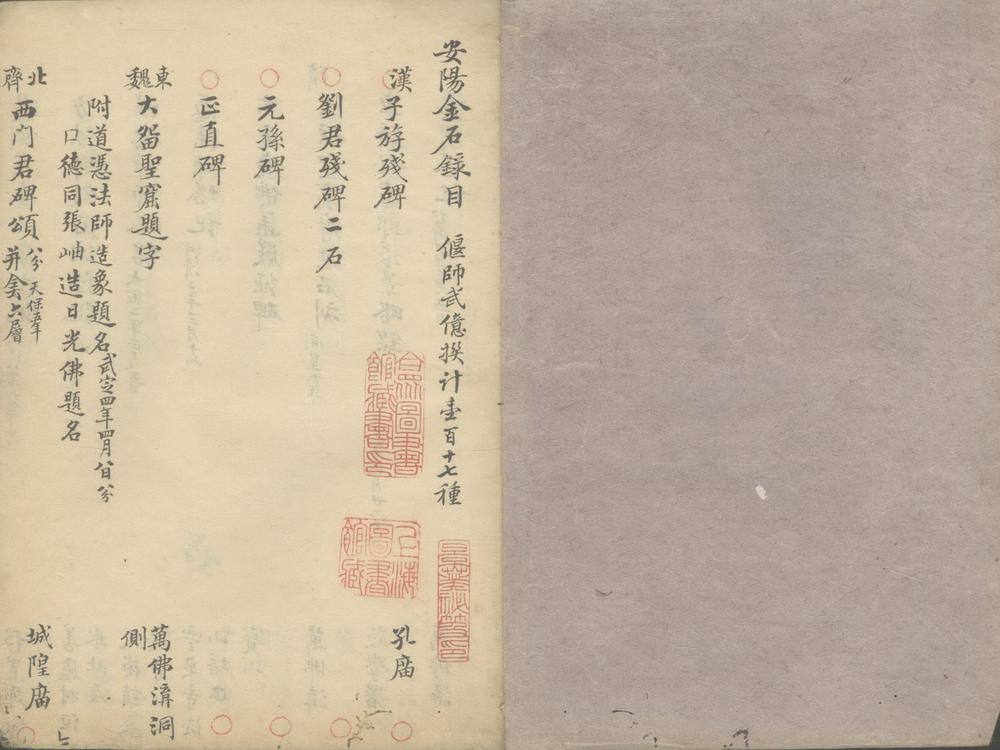 安陽金石錄目　偃師武億撰計壹百十七種
漢子斿殘碑　孔庙
劉君殘碑二石
元孫碑
正直碑
東魏大畱聖窟題字　萬佛溝洞側
附道憑法師造象題名武定四年四月八日八分
口德同張岫造日光佛題名
北齊西门君碑頌八分天保五年并侌六層　城隍庙
合眾圖書館藏書印
上海圖書館藏